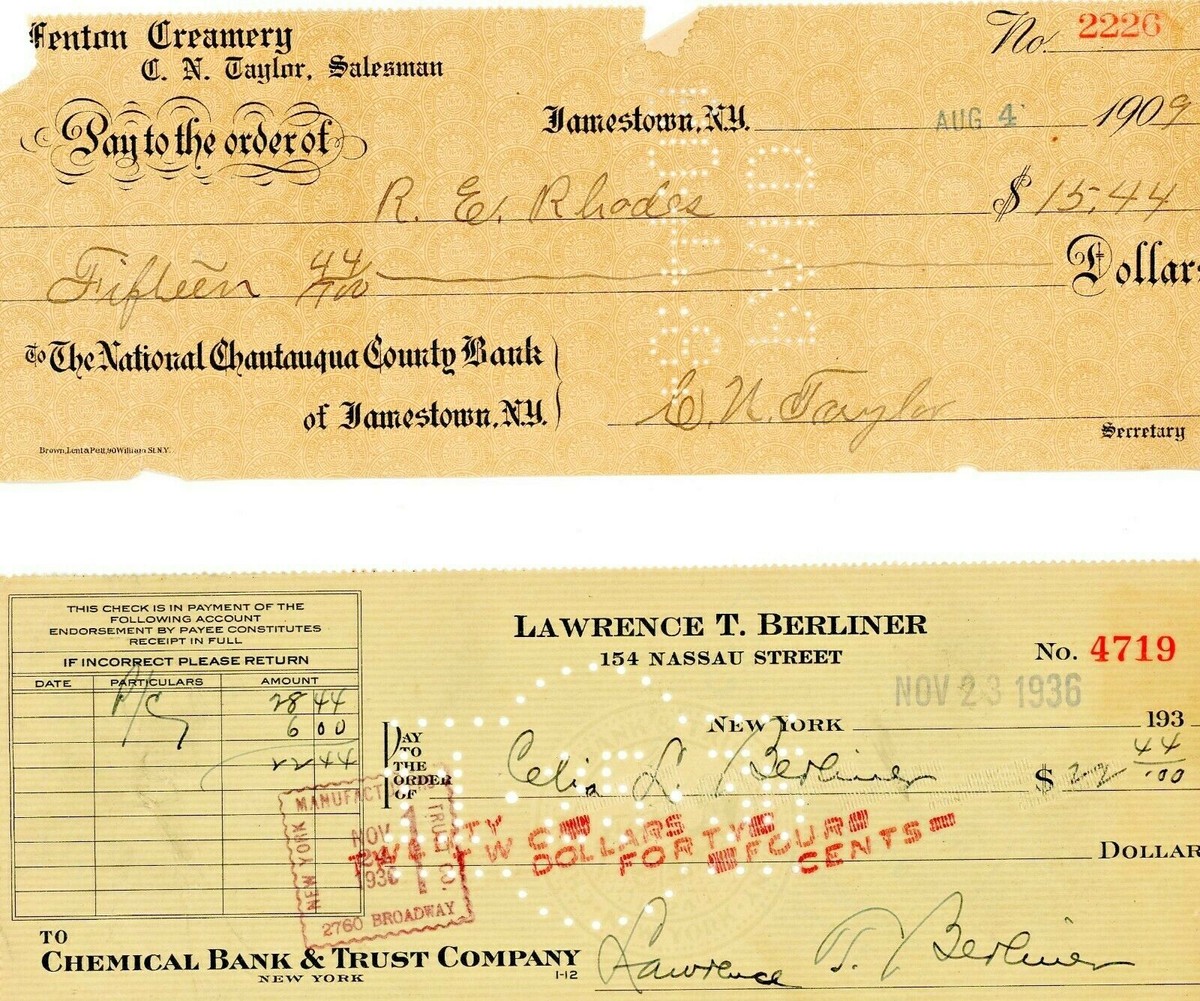 Fenton Creamery
C. N. Taylor, Salesman
No. 2226
Pay to the order of
Jamestown, N.Y. AUG 4 1909
R. E. Rhodes $15.44
Fifteen 44/100 Dollars
To The National Chautauqua County Bank
of Jamestown, N.Y.
C. N. Taylor
Secretary
Brown, Lent & Pett, 90 William St. N.Y.
PAID
THIS CHECK IS IN PAYMENT OF THE
FOLLOWING ACCOUNT
ENDORSEMENT BY PAYEE CONSTITUTES
RECEIPT IN FULL
IF INCORRECT PLEASE RETURN
DATE PARTICULARS AMOUNT
28 44
6 00
22 44
LAWRENCE T. BERLINER
154 NASSAU STREET
No. 4719
NOV 23 1936
NEW YORK 193
PAY TO THE ORDER OF Celia L. Berliner $ 22 44/100
TWENTY TWO DOLLARS FORTY FOUR CENTS
DOLLAR
NEW YORK MANUFACT TRUST CO.
NOV
1936
1
2760 BROADWAY
TO
CHEMICAL BANK & TRUST COMPANY
NEW YORK 1-12
Lawrence T. Berliner